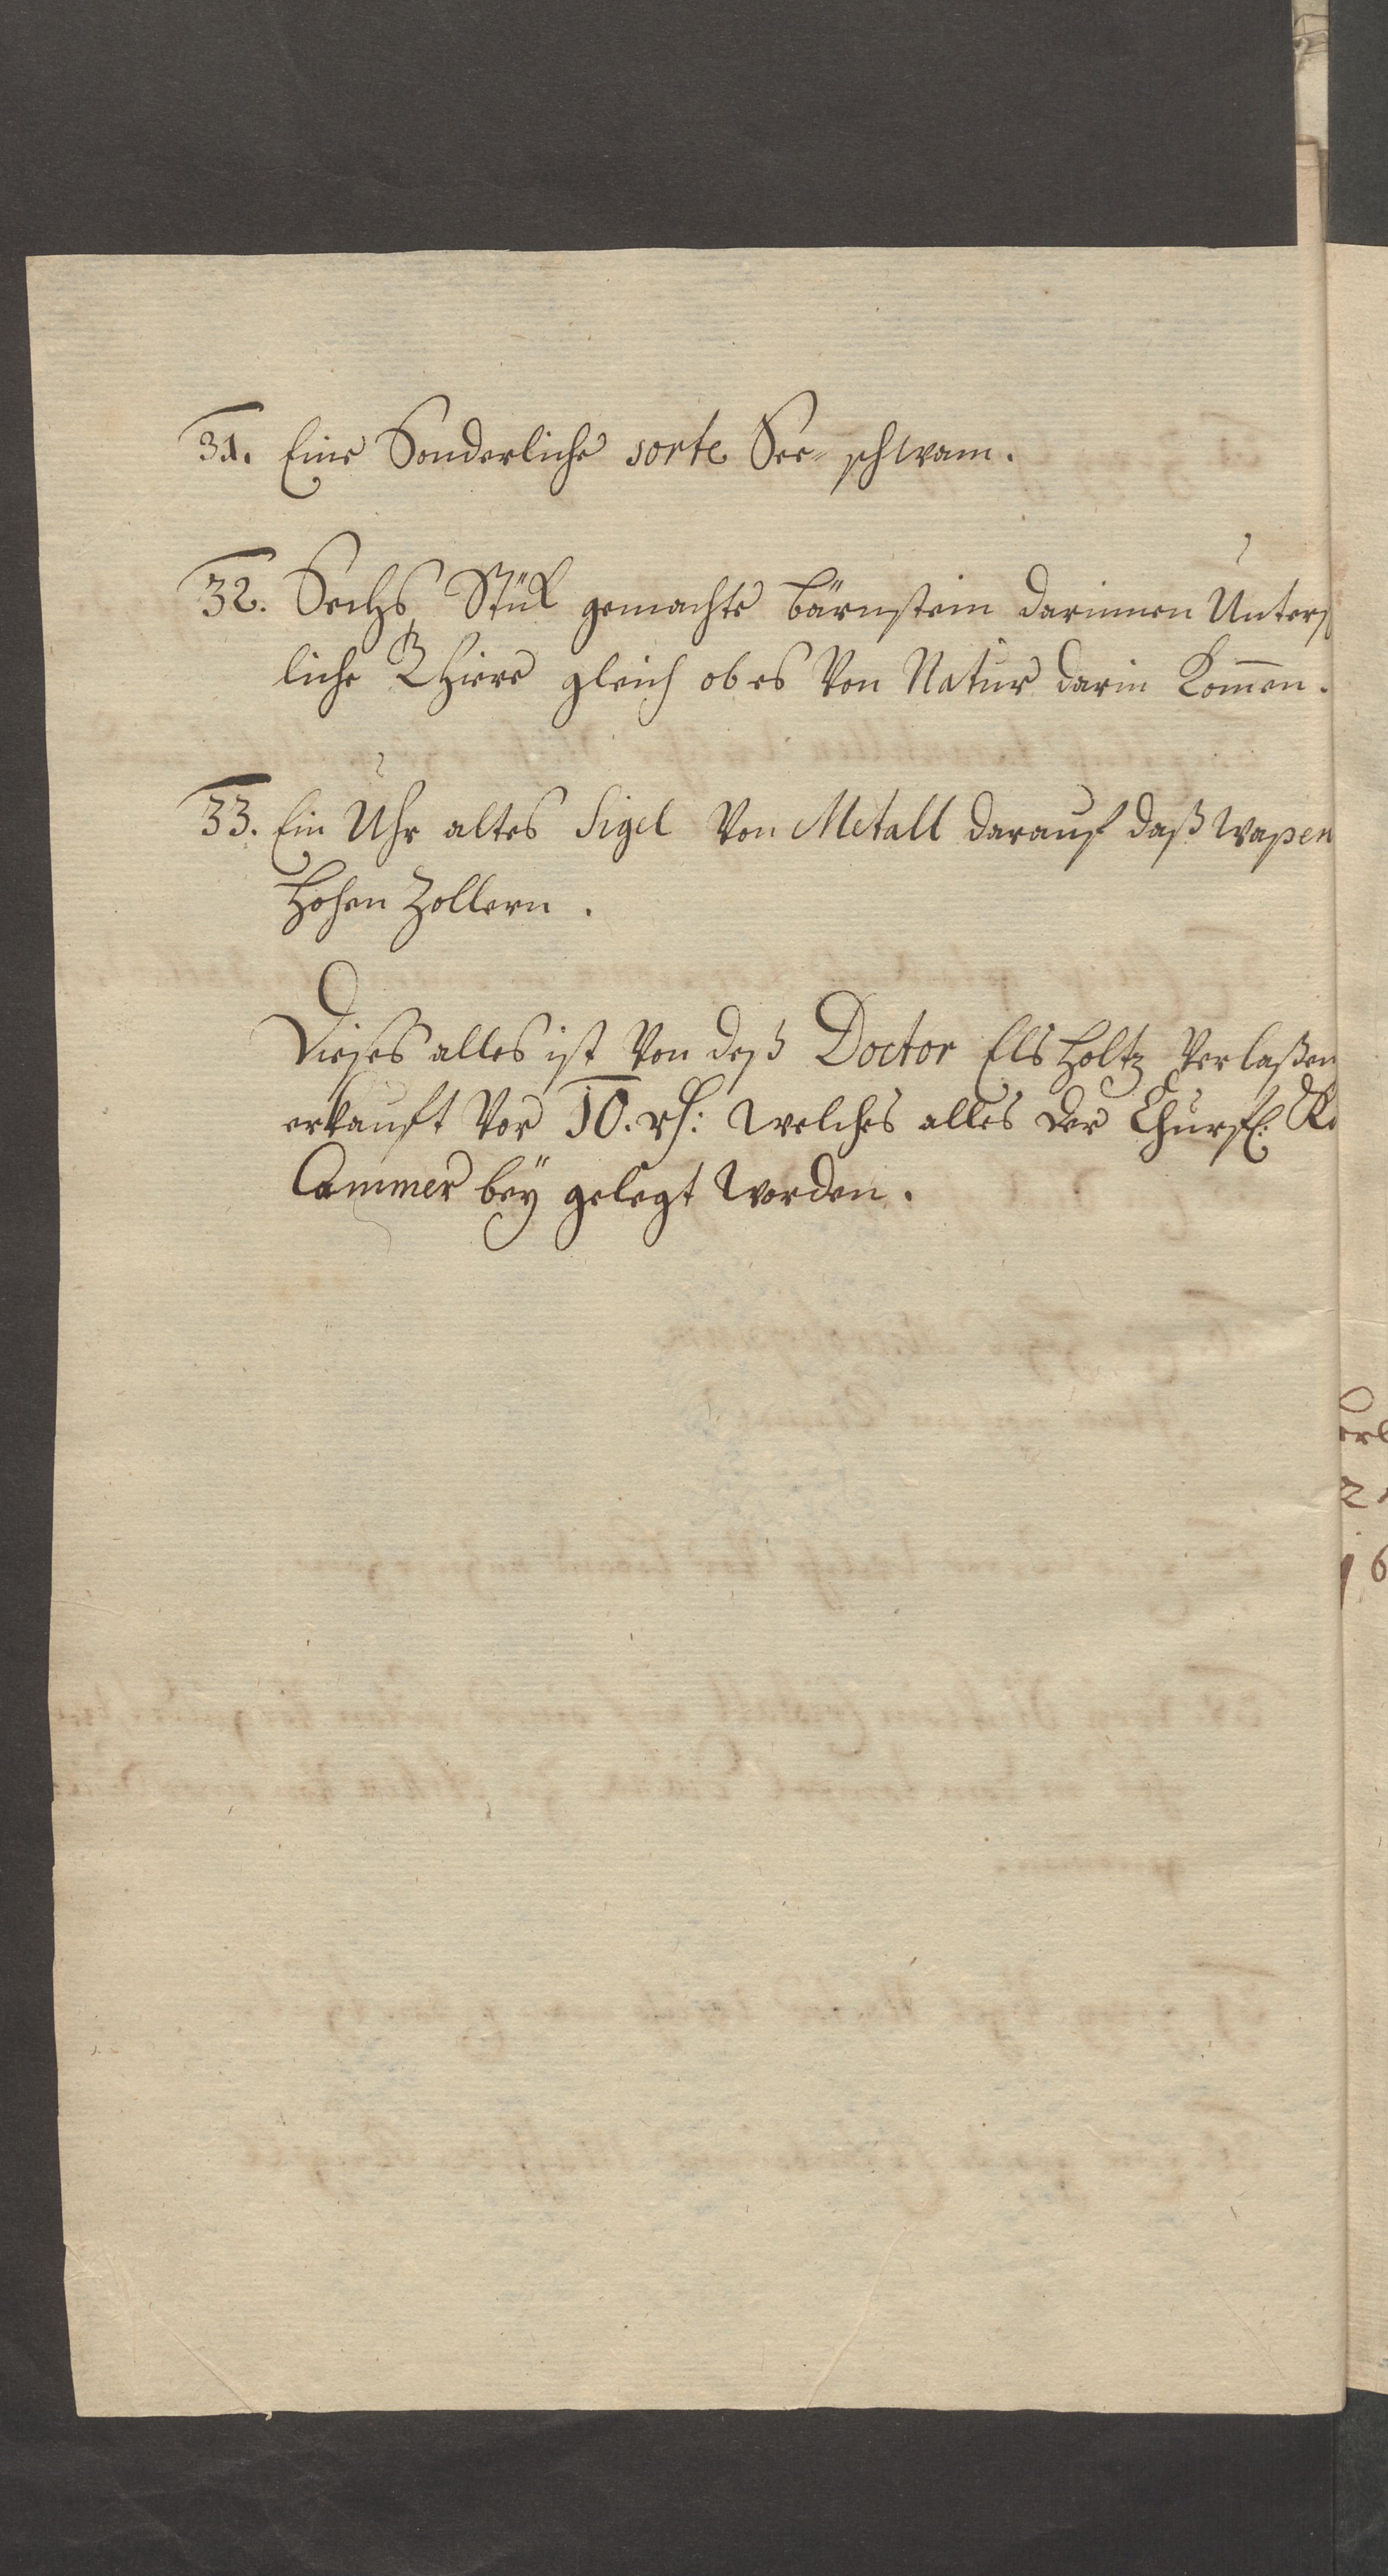 31. Eine Sonderliche sorte See-schwam.
32. Sechs Stük gemachte bärnstein darinnen Untersch
liche Thiere gleich ob es Von Natur darin Kom̄en.
33. Ein Uhr altes Sigel Von Metall darauf daß wapen
Hohen Zollern.
Dieses alles ist Von deß Doctor Elsholtz Verlaßen
erkauft Vor 50. rh: welches alles der Churf: K
Cammer beÿ gelegt worden.